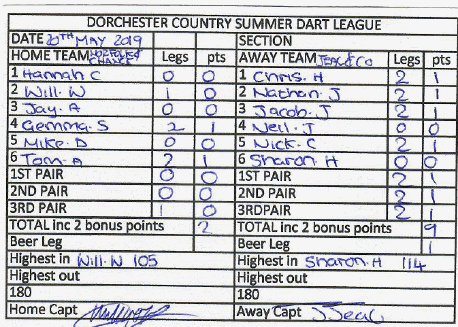 DORCHESTER COUNTRY SUMMER DART LEAGUE
DATE 20TH MAY 2019 SECTION
HOME TEAM NORFOLK & CHANCE Legs pts AWAY TEAM JEAL & CO Legs pts
1 Hannah C 0 0 1 Chris. H 2 1
2 Will. W 1 0 2 Nathan. J 2 1
3 Jay. A 0 0 3 Jacob. J 2 1
4 Gemma. S 2 1 4 Neil. J 0 0
5 Mike. D 0 0 5 Nick. C 2 1
6 Tom. A 2 1 6 Sharon. H 0 0
1ST PAIR 0 0 1ST PAIR 2 1
2ND PAIR 0 0 2ND PAIR 2 1
3RD PAIR 1 0 3RDPAIR 2 1
TOTAL inc 2 bonus points 2 TOTAL inc 2 bonus points 9
Beer Leg Beer Leg 1
Highest in Will. W 105 Highest in Sharon. H 114
Highest out Highest out
180 180
Home Capt Away Capt J Jeal